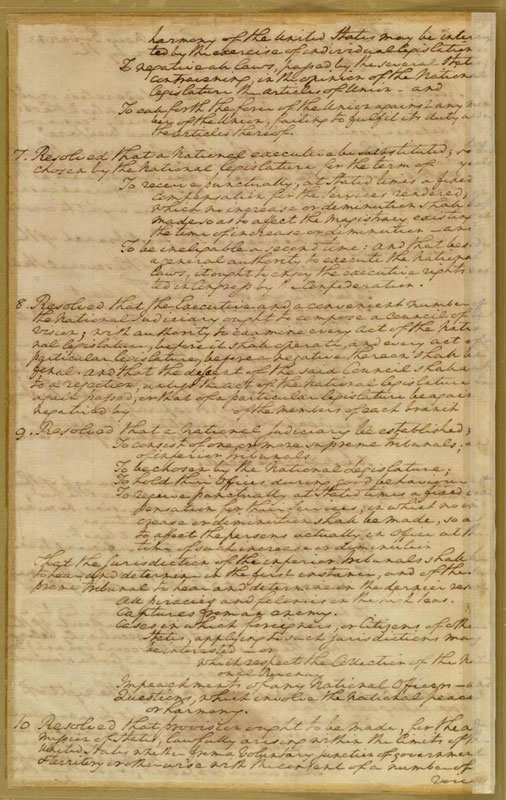 harmony of the United States may be inter
ted by the exercise of individual legislation
To negative all laws, passed by the several State
contravening, in the opinion of the Nation
legislature the articles of Union - and
To call forth the force of the Union against any m
ber of the Union, failing to fulfil its duty u
the articles thereof.
7. Resolved that a national executive be instituted; to
chosen by the national legislature for the term of ye
To receive punctually, at stated times a fixed
compensation for the services rendered,
which no increase or diminution shall b
made so as to affect the magistracy existing
the time of increase or diminution - and
To be ineligible a second time: and that bes
a general authority to execute the nation
laws, it ought to enjoy the executive rights
ted in Congress by Confederation.
8. Resolved that the Executive and a convenient number
the national judiciary ought to compose a council of
vision; with authority to examine every act of the nati
nal legislature, before it shall operate, and every act o
particular legislature, before a negative thereon shall b
final. and that the dissent of the said Council shall a
to a rejection, unless the act of the national legislature
again passed, or that of a particular legislature be again
negatived by of the members of each branch
9. Resolved that a national judiciary be established;
To consist of one or more supreme tribunals, a
of inferior tribunals.
To be chosen by the National legislature;
To hold their Offices during good behaviour
To receive punctually at stated times a fixed c
pensation for their services, in which no in
crease or diminution shall be made, so a
to affect the persons actually in Office at th
time of such increase or diminution
That the jurisdiction of the inferior tribunals shall
to hear and determine in the first instance, and of the s
preme tribunal to hear and determine in the dernier res
All piracies and felonies on the high seas.
Captures from an enemy.
Cases in which foreigners, or Citizens of othe
States, applying to such jurisdictions may
be interested - or
which respect the Collection of the N
onal Revenue
Impeachment of any National Officer - a
Questions, which involve the national peace
or harmony.
10. Resolved that provision ought to be made, for the a
mission of States, lawfully arising within the limits of
United States whether from a Voluntary junction of government
& territory or otherwise with the consent of a number of
voice